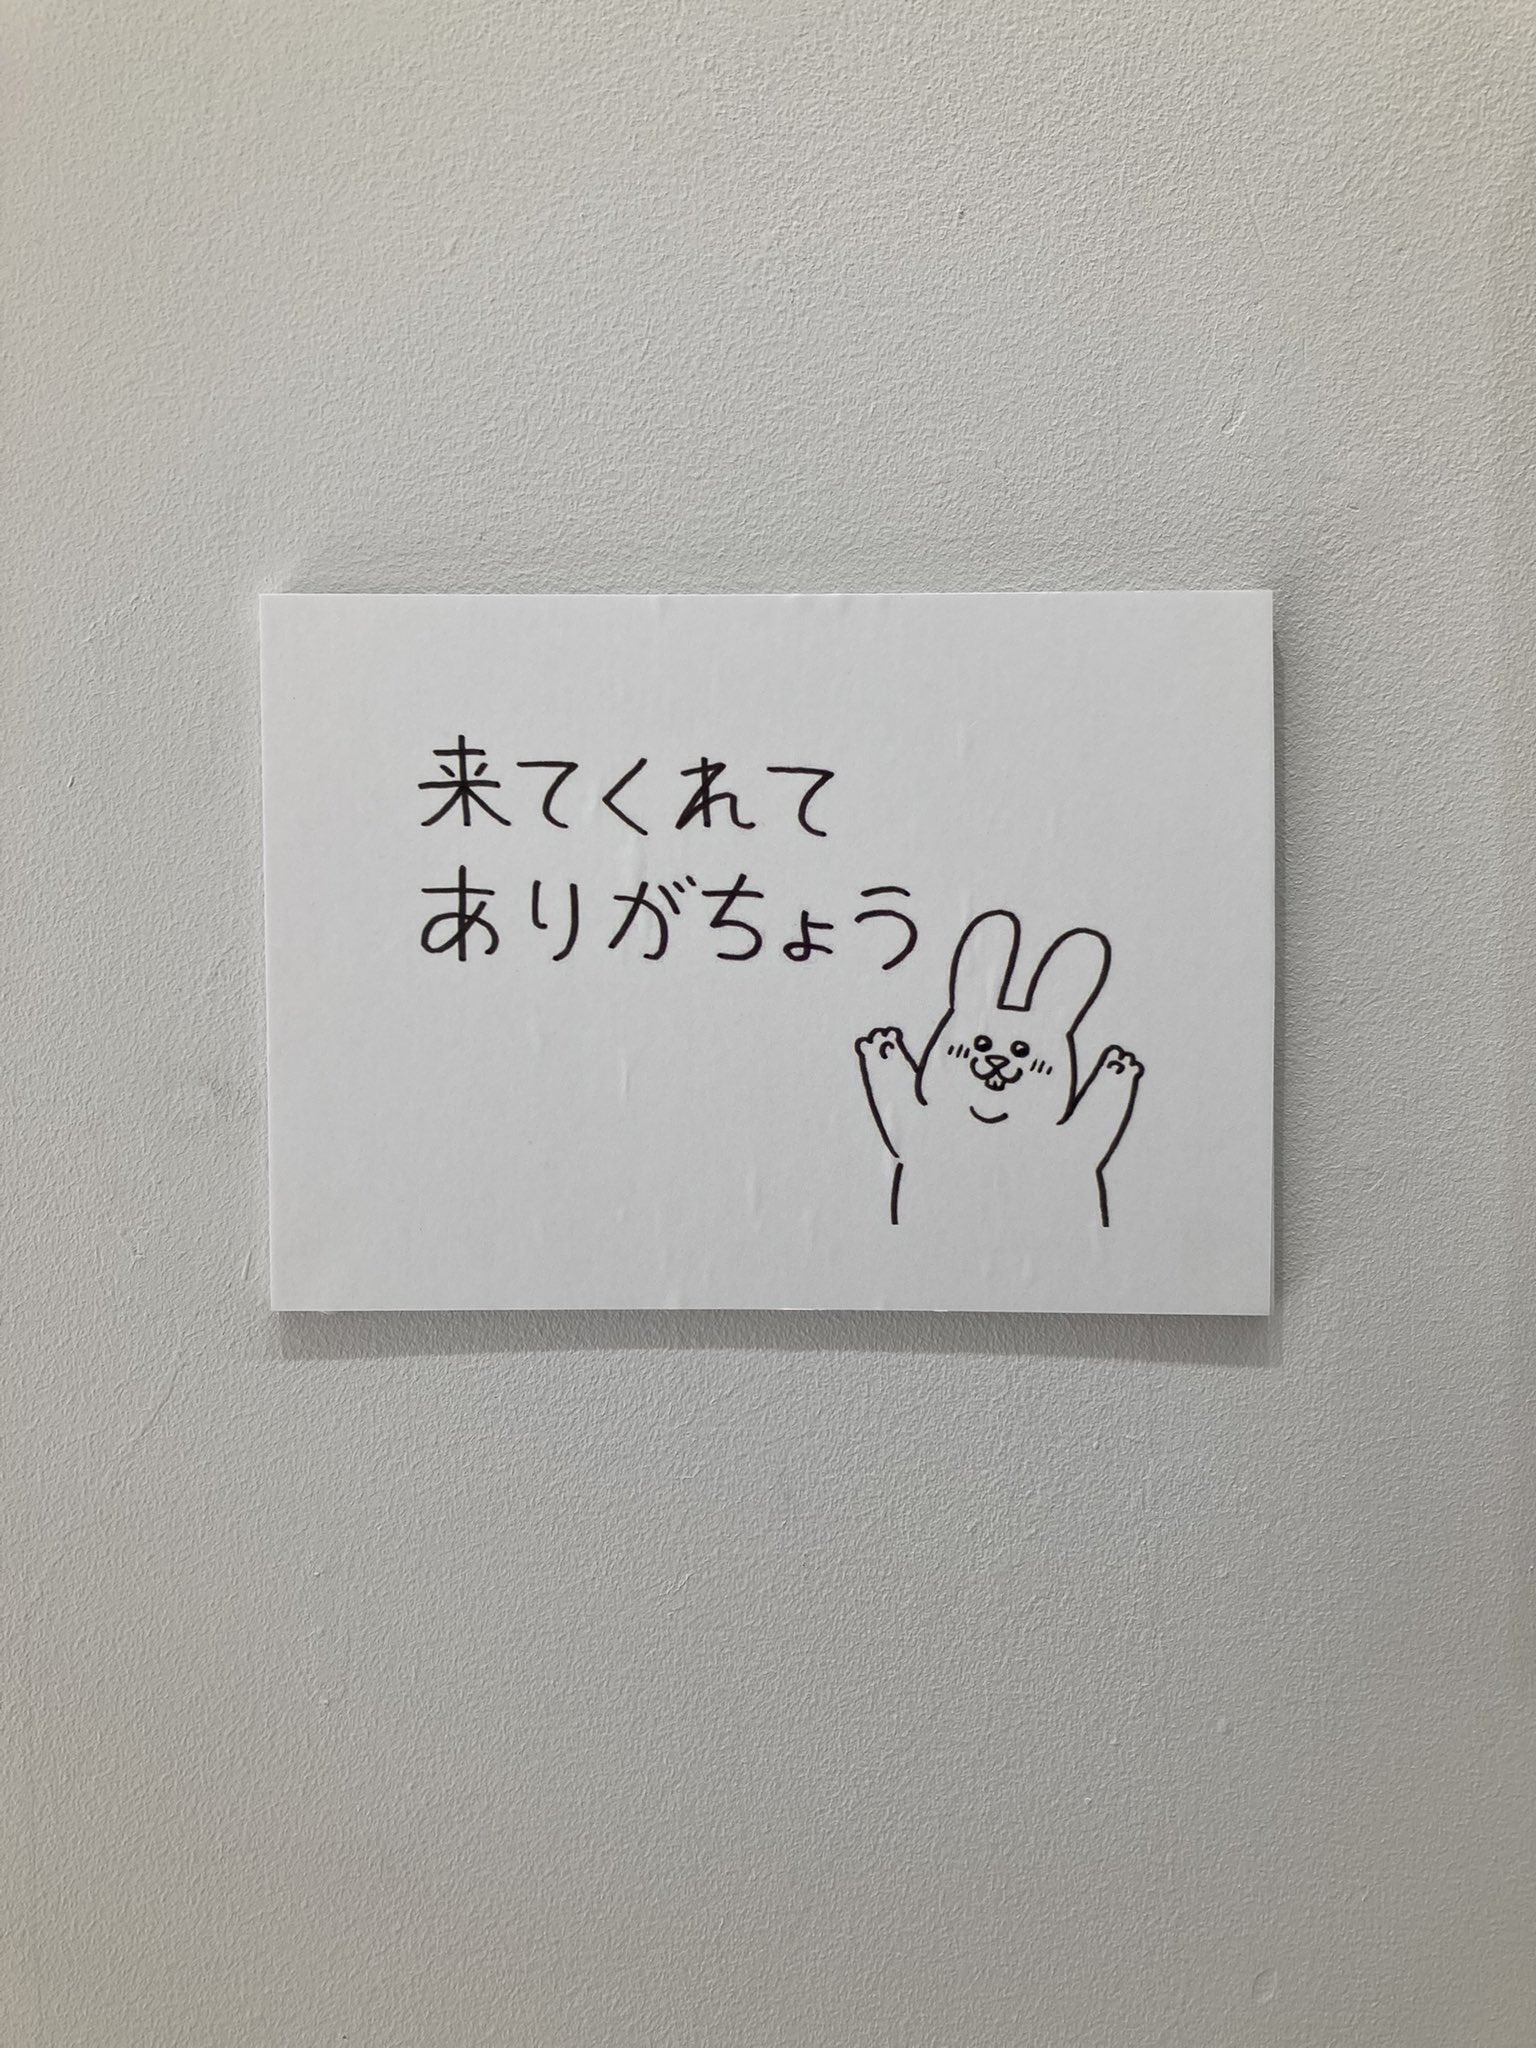 来てくれて
ありがちょう